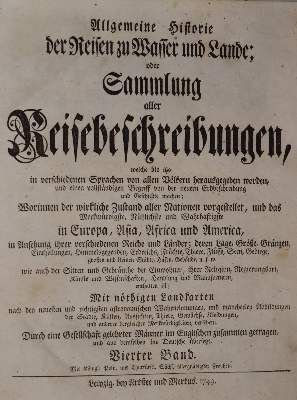 Allgemeine Historie
der Reisen zu Wasser und Lande;
oder
Sammlung
aller
Reisebeschreibungen,
welche bis itzo
in verschiedenen Sprachen von allen Völkern herausgegeben worden,
und einen vollständigen Begriff von der neuern Erdbeschreibung
und Geschichte machen;
Worinnen der wirkliche Zustand aller Nationen vorgestellet, und das
Merkwürdigste, Nützlichste und Wahrhaftigste
in Europa, Asia, Africa und America,
in Ansehung ihrer verschiedenen Reiche und Länder; deren Lage, Größe, Gränzen,
Eintheilungen, Himmelsgegenden, Erdreichs, Früchte, Thiere, Flüsse, Seen, Gebirge,
großen und kleinen Städte, Häfen, Gebäude, u.s.w.
wie auch der Sitten und Gebräuche der Einwohner, ihrer Religion, Regierungsart,
Künste und Wissenschaften, Handlung und Manufacturen,
enthalten ist;
Mit nöthigen Landkarten
nach den neuesten und richtigsten astronomischen Wahrnehmungen, und mancherley Abbildungen
der Städte, Küsten, Aussichten, Thiere, Gewächse, Kleidungen,
und anderer dergleichen Merkwürdigkeiten, versehen;
Durch eine Gesellschaft gelehrter Männer im Englischen zusammen getragen,
und aus demselben ins Deutsche übersetzt.
Vierter Band.
Mit Königl. Poln. und Churfürstl. Sächs. allergnädigster Freyheit.
Leipzig, bey Arkstee und Merkus. 1749.